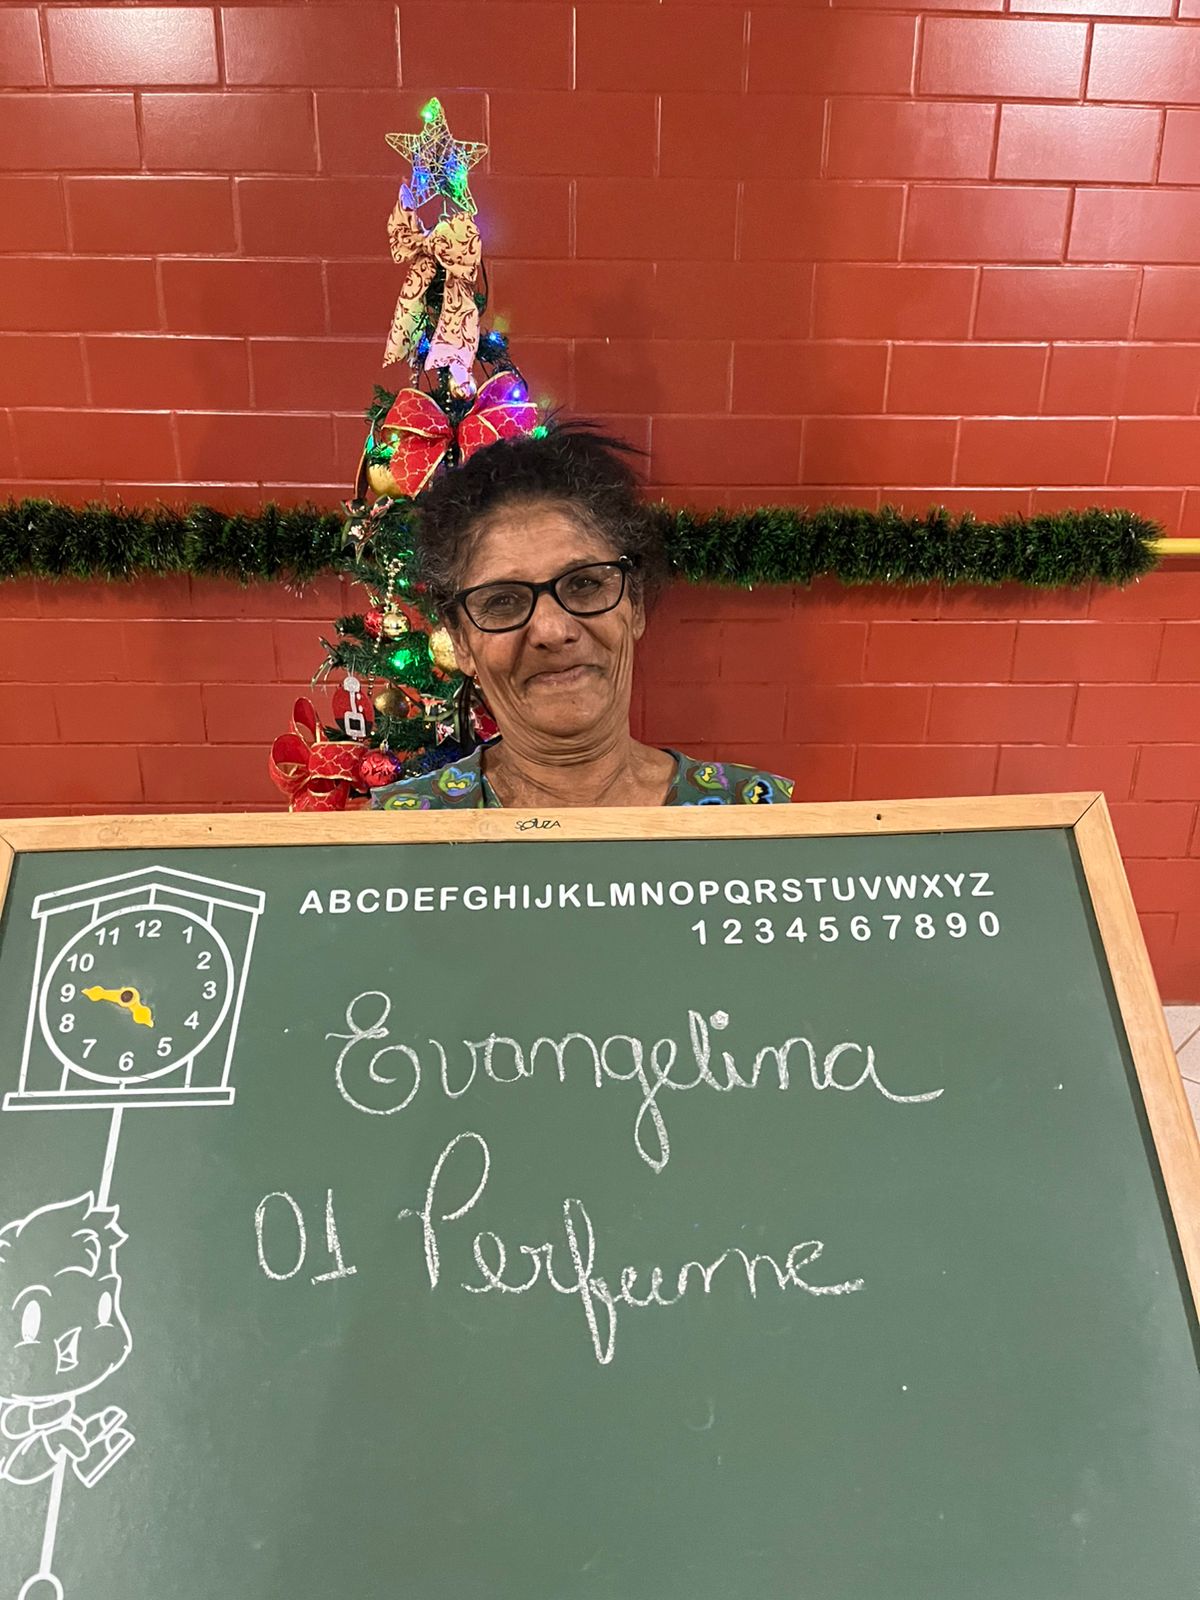 SOUZA
ABCDEFGHIJKLMNOPQRSTUVWXYZ
1234567890
11 12 1
10 2
9 3
8 4
7 6 5
Evangelina
01 Perfume